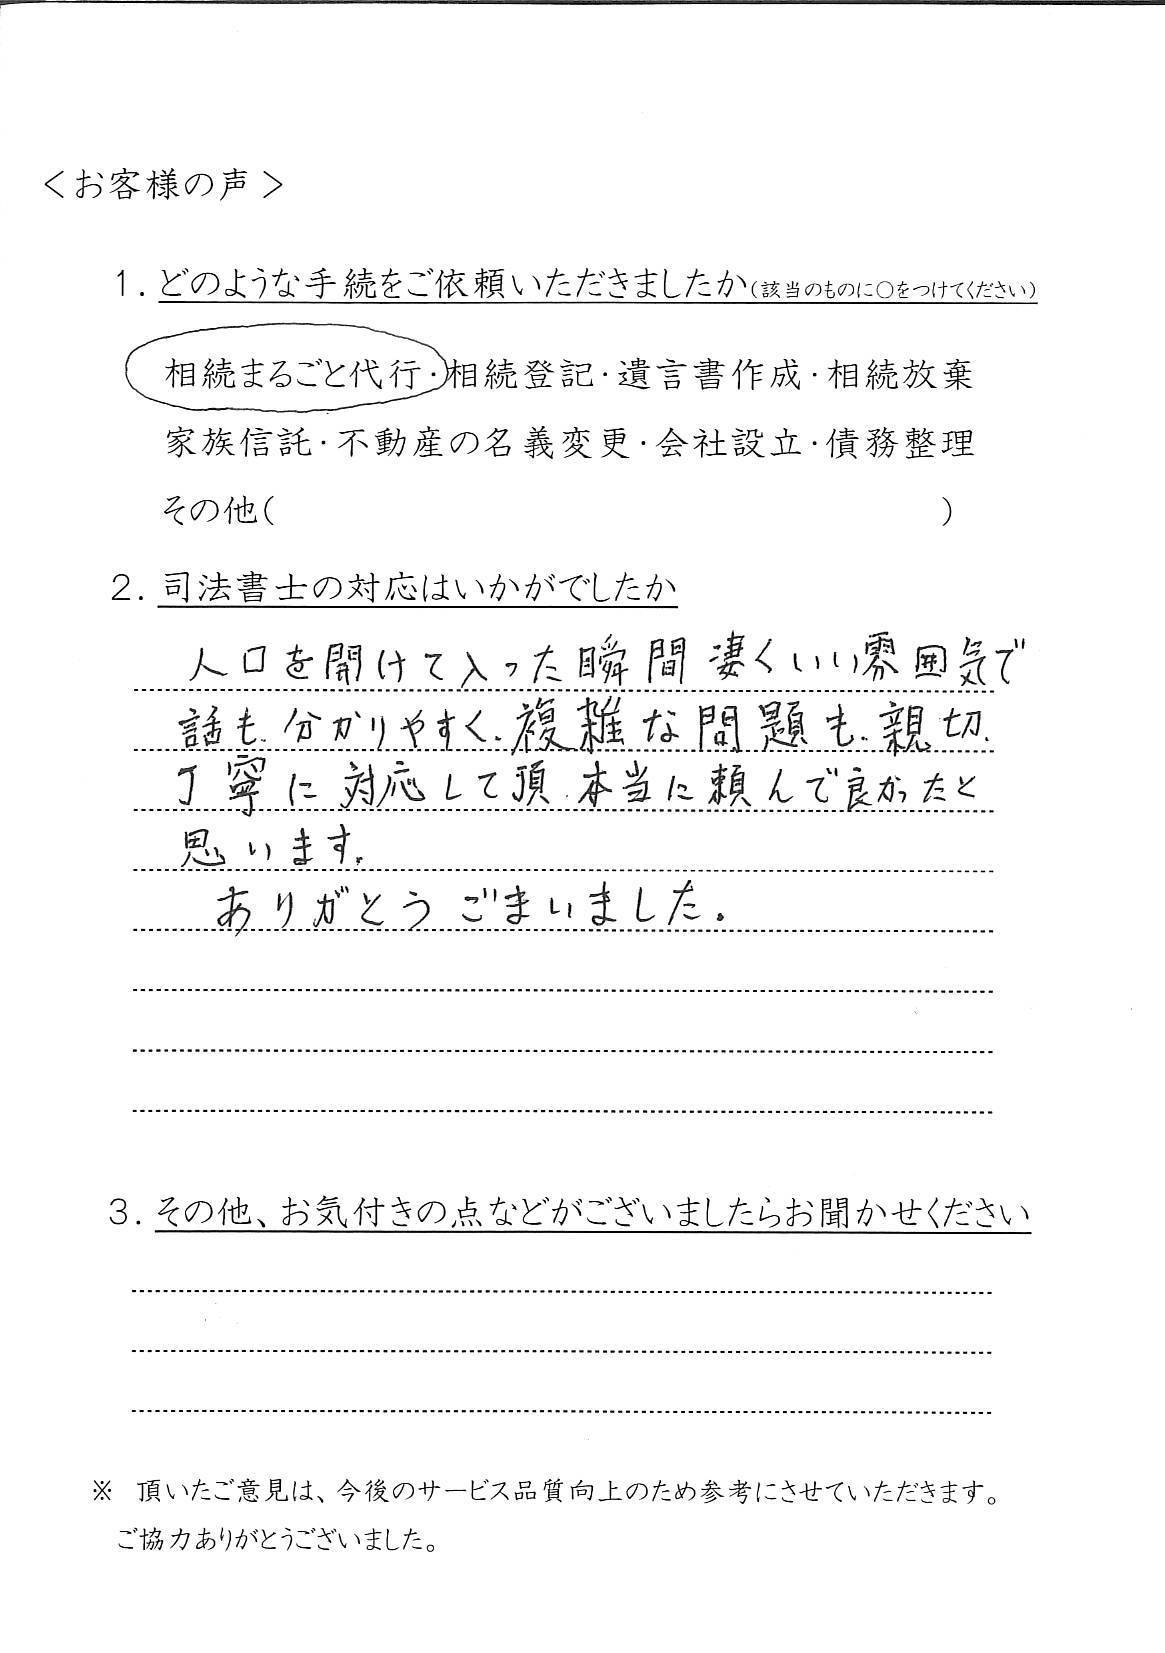 ＜お客様の声＞
1. どのような手続をご依頼いただきましたか(該当のものに○をつけてください)
相続まるごと代行・相続登記・遺言書作成・相続放棄
家族信託・不動産の名義変更・会社設立・債務整理
その他(　　　)
2. 司法書士の対応はいかがでしたか
人口を開けて入った瞬間凄くいい雰囲気で
話も、分かりやすく、複雑な問題も、親切、
丁寧に対応して頂、本当に頼んで良かったと
思います。
ありがとうごまいました。
3. その他、お気付きの点などがございましたらお聞かせください
※ 頂いたご意見は、今後のサービス品質向上のため参考にさせていただきます。
ご協力ありがとうございました。